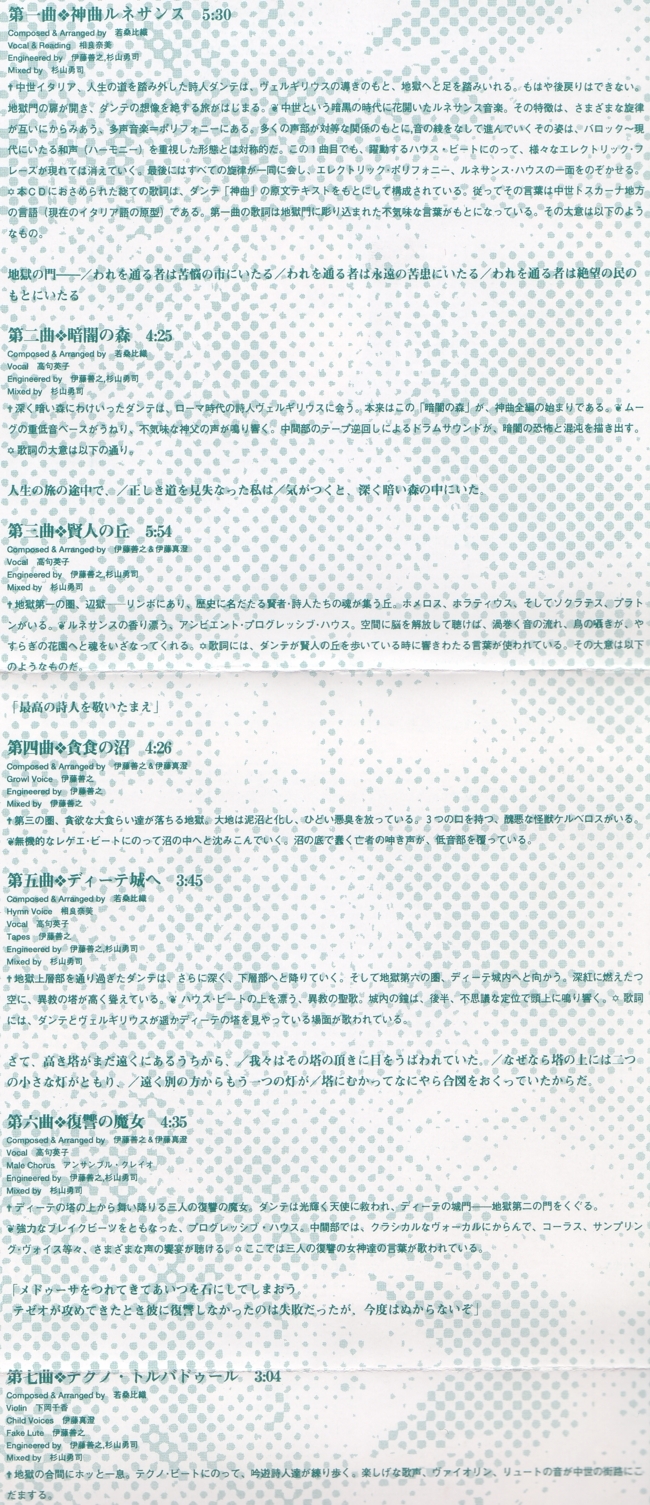 第一曲❖神曲ルネサンス　5:30
Composed & Arranged by　若桑比織
Vocal & Reading　相良奈美
Engineered by　伊藤善之,杉山勇司
Mixed by　杉山勇司
✝中世イタリア、人生の道を踏み外した詩人ダンテは、ヴェルギリウスの導きのもと、地獄へと足を踏みいれる。もはや後戻りはできない。
地獄門の扉が開き、ダンテの想像を絶する旅がはじまる。❦中世という暗黒の時代に花開いたルネサンス音楽。その特徴は、さまざまな旋律
が互いにからみあう、多声音楽＝ポリフォニーにある。多くの声部が対等な関係のもとに,音の綾をなして進んでいくその姿は、バロック〜現
代にいたる和声（ハーモニー）を重視した形態とは対称的だ。この1曲目でも、躍動するハウス・ビートにのって、様々なエレクトリック・フ
レーズが現れては消えていく。最後にはすべての旋律が一同に会し、エレクトリック・ポリフォニー、ルネサンス・ハウスの一面をのぞかせる。
✡本ＣＤにおさめられた総ての歌詞は、ダンテ「神曲」の原文テキストをもとにして構成されている。従ってその言葉は中世トスカーナ地方
の言語（現在のイタリア語の原型）である。第一曲の歌詞は地獄門に彫り込まれた不気味な言葉がもとになっている。その大意は以下のよう
なもの。
地獄の門――／われを通る者は苦悩の市にいたる／われを通る者は永遠の苦患にいたる／われを通る者は絶望の民の
もとにいたる
第二曲❖暗闇の森　4:25
Composed & Arranged by　若桑比織
Vocal　高句英子
Engineered by　伊藤善之,杉山勇司
Mixed by　杉山勇司
✝深く暗い森にわけいったダンテは、ローマ時代の詩人ヴェルギリウスに会う。本来はこの「暗闇の森」が、神曲全編の始まりである。❦ムー
グの重低音ベースがうねり、不気味な神父の声が鳴り響く。中間部のテープ逆回しによるドラムサウンドが、暗闇の恐怖と混沌を描き出す。
✡歌詞の大意は以下の通り。
人生の旅の途中で、／正しき道を見失なった私は／気がつくと、深く暗い森の中にいた。
第三曲❖賢人の丘　5:54
Composed & Arranged by　伊藤善之&伊藤真澄
Vocal　高句英子
Engineered by　伊藤善之,杉山勇司
Mixed by　杉山勇司
✝地獄第一の圏、辺獄――リンボにあり、歴史に名だたる賢者・詩人たちの魂が集う丘。ホメロス、ホラティウス、そしてソクラテス、プラト
ンがいる。❦ルネサンスの香り漂う、アンビエント・プログレッシブ・ハウス。空間に脳を解放して聴けば、渦巻く音の流れ、鳥の囁きが、や
すらぎの花園へと魂をいざなってくれる。✡歌詞には、ダンテが賢人の丘を歩いている時に響きわたる言葉が使われている。その大意は以下
のようなものだ。
「最高の詩人を敬いたまえ」
第四曲❖貪食の沼　4:26
Composed & Arranged by　伊藤善之&伊藤真澄
Growl Voice　伊藤善之
Engineered by　伊藤善之
Mixed by　伊藤善之
✝第三の圏、貪欲な大食らい達が落ちる地獄。大地は泥沼と化し、ひどい悪臭を放っている。3つの口を持つ、醜悪な怪獣ケルベロスがいる。
❦無機的なレゲエ・ビートにのって沼の中へと沈みこんでいく。沼の底で蠢く亡者の呻き声が、低音部を覆っている。
第五曲❖ディーテ城へ　3:45
Composed & Arranged by　若桑比織
Hymn Voice　相良奈美
Vocal　高句英子
Tapes　伊藤善之
Engineered by　伊藤善之,杉山勇司
Mixed by　杉山勇司
✝地獄上層部を通り過ぎたダンテは、さらに深く、下層部へと降りていく。そして地獄第六の圏、ディーテ城内へと向かう。深紅に燃えたつ
空に、異教の塔が高く聳えている。❦ハウス・ビートの上を漂う、異教の聖歌。城内の鐘は、後半、不思議な定位で頭上に鳴り響く。✡歌詞
には、ダンテとヴェルギリウスが遥かディーテの塔を見やっている場面が歌われている。
さて、高き塔がまだ遠くにあるうちから、／我々はその塔の頂きに目をうばわれていた。／なぜなら塔の上には二つ
の小さな灯がともり、／遠く別の方からもう一つの灯が／塔にむかってなにやら合図をおくっていたからだ。
第六曲❖復讐の魔女　4:35
Composed & Arranged by　伊藤善之&伊藤真澄
Vocal　高句英子
Male Chorus　アンサンブル・クレイオ
Engineered by　伊藤善之,杉山勇司
Mixed by　杉山勇司
✝ディーテの塔の上から舞い降りる三人の復讐の魔女。ダンテは光輝く天使に救われ、ディーテの城門――地獄第二の門をくぐる。
❦強力なブレイクビーツをともなった、プログレッシブ・ハウス。中間部では、クラシカルなヴォーカルにからんで、コーラス、サンプリン
グ・ヴォイス等々、さまざまな声の饗宴が聴ける。✡ここでは三人の復讐の女神達の言葉が歌われている。
「メドゥーサをつれてきてあいつを石にしてしまおう。
テゼオが攻めてきたとき彼に復讐しなかったのは失敗だったが、今度はぬからないぞ」
第七曲❖テクノ・トルバドゥール　3:04
Composed & Arranged by　若桑比織
Violin　下岡千香
Child Voices　伊藤真澄
Fake Lute　伊藤善之
Engineered by　伊藤善之,杉山勇司
Mixed by　杉山勇司
✝地獄の合間にホッと一息。テクノ・ビートにのって、吟遊詩人達が練り歩く。楽しげな歌声、ヴァイオリン、リュートの音が中世の街路にこ
だまする。